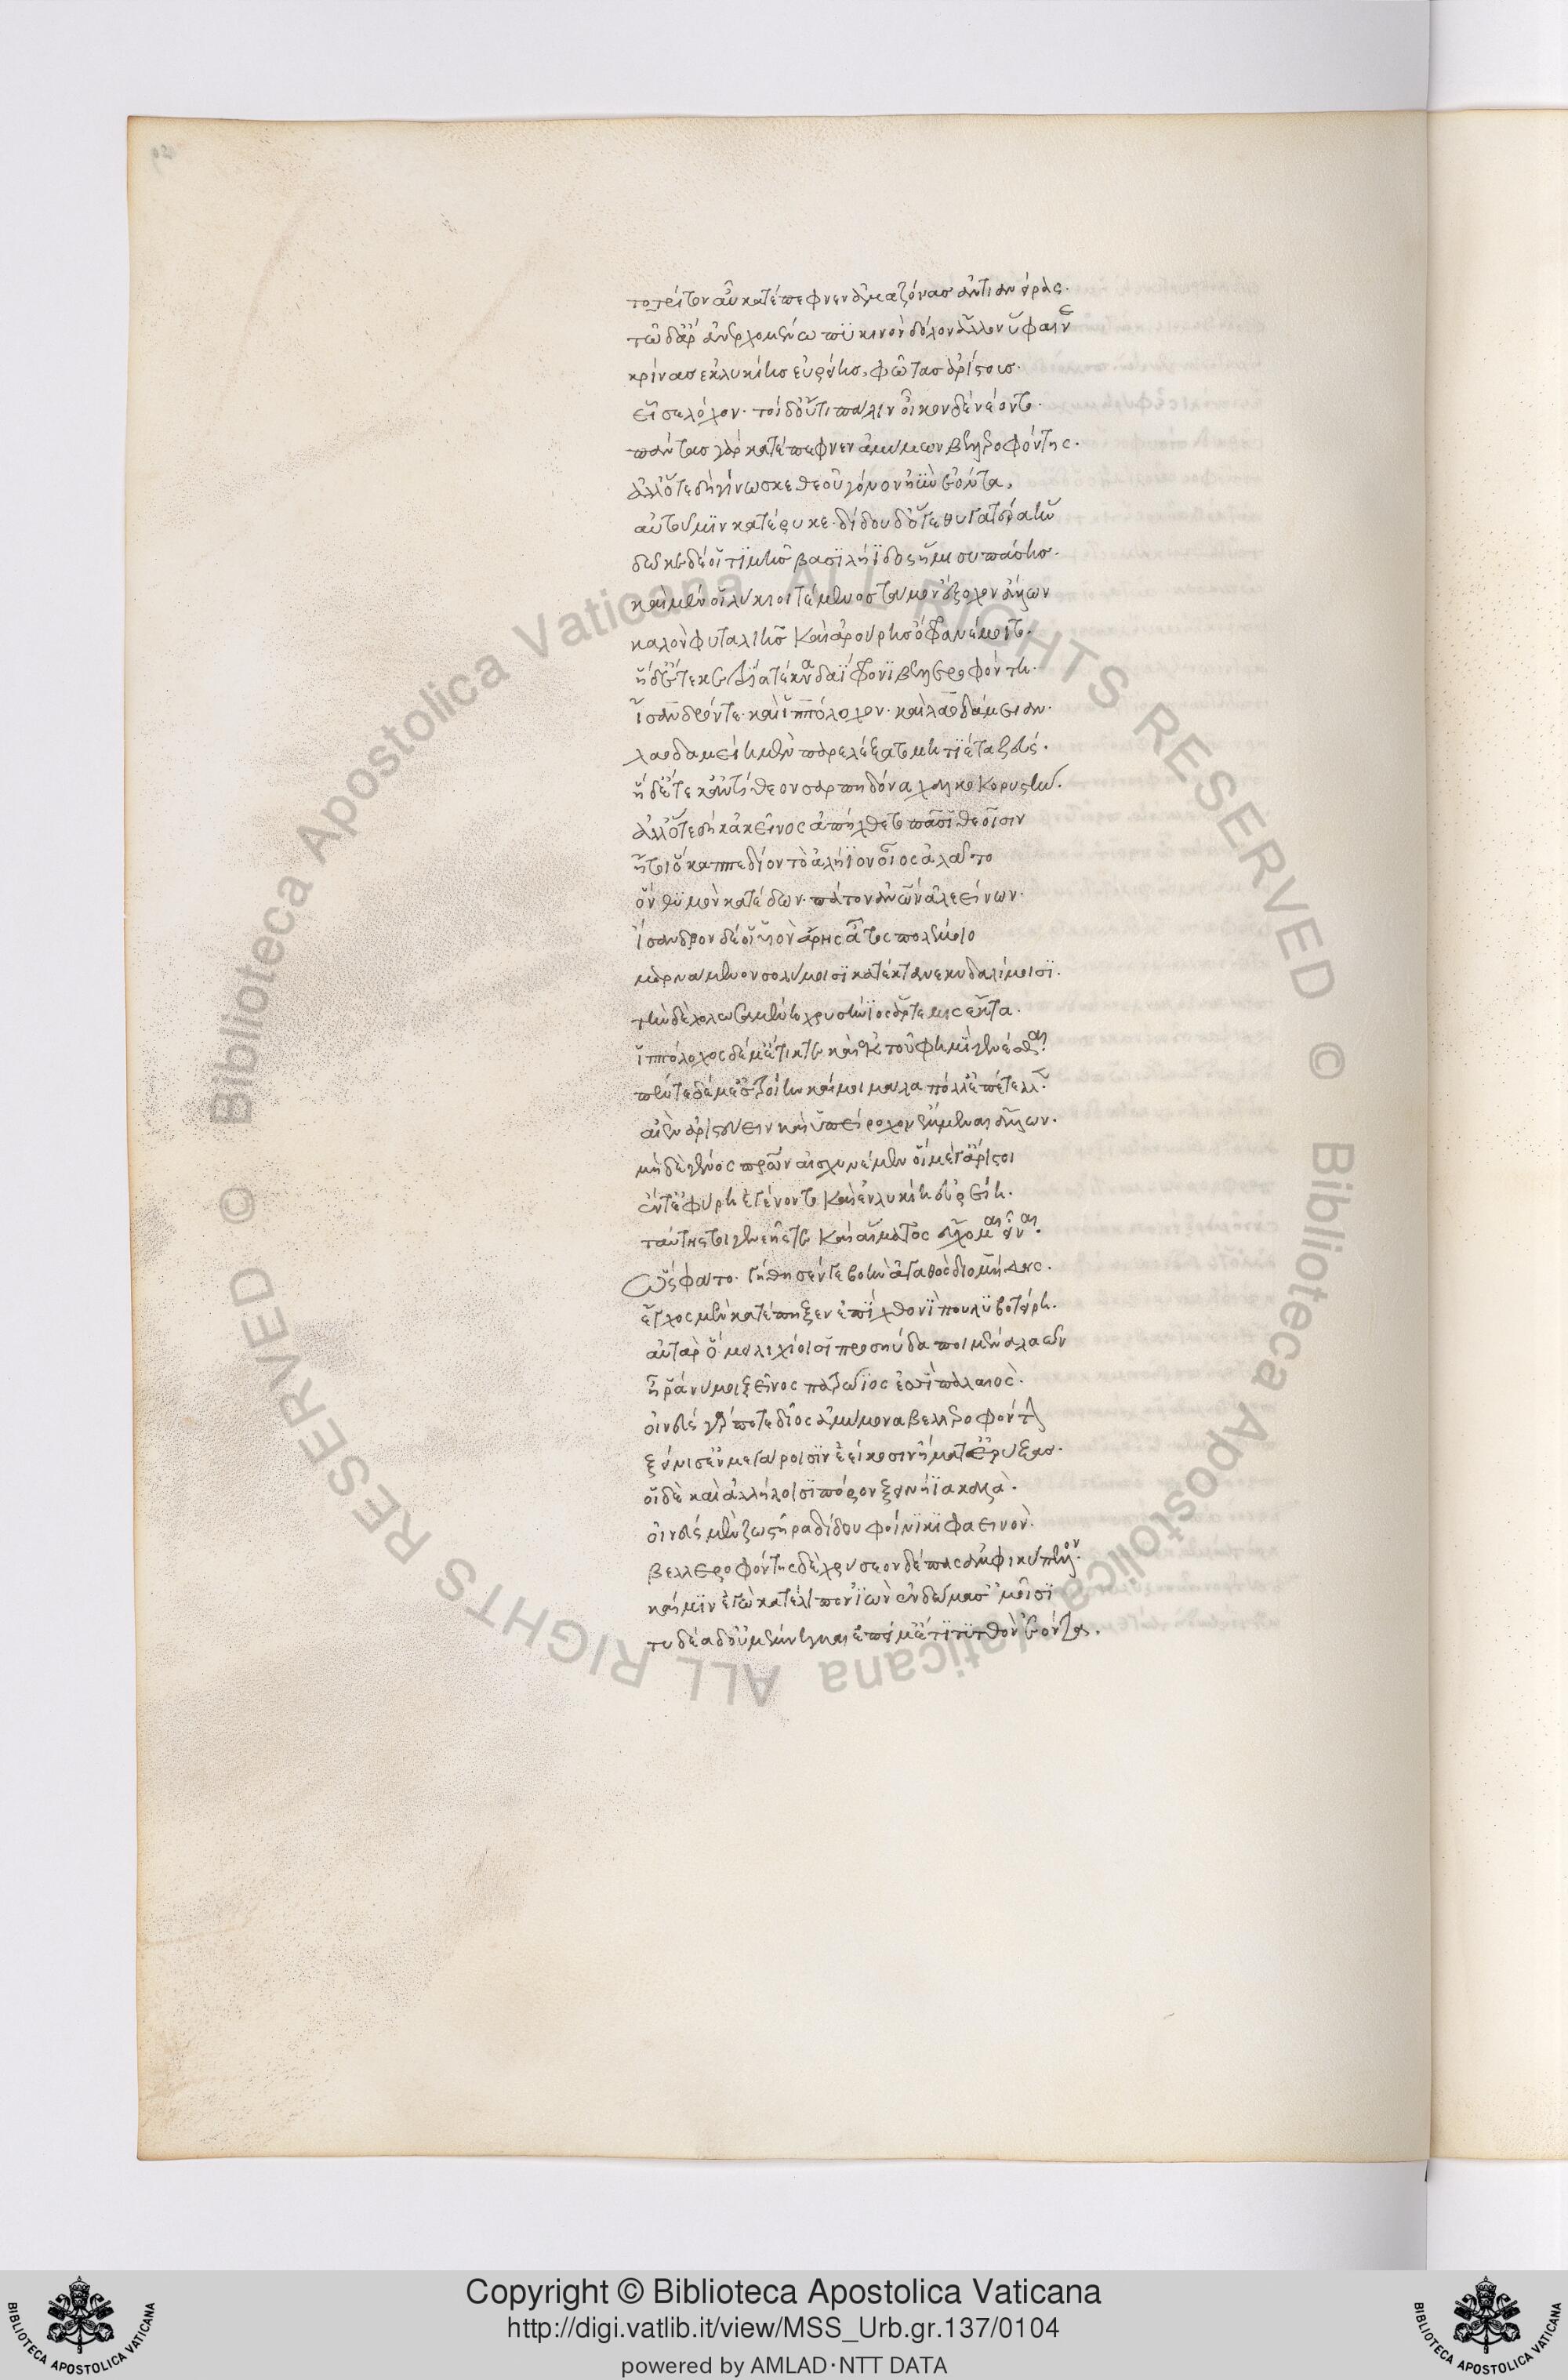 τοτρίτον αὖ κατέπεφνεν ἀμαζόνας ἀντιανείρας.
τῶ δἄρ ἀνερχομένω πυκινὸν δόλον ἄλλον ὕφαινε
κρίνας ἐκ λυκίης εὐρείης, φῶτας ἀρίστους.
εἷσε λόχον. τοὶ δ οὔτι πάλιν οἶκον δὲ νέοντο.
πάντας γὰρ κατέπεφνεν ἀμύμων βελλεροφόντης.
ἀλλ ὅτε δὴ γίνωσκε θεοῦ γόνον ἠῢν ἐόντα,
αὐτοῦ μιν κατέρυκε. δίδου δ ὅτε θυγατέρα ἣν
δῶκε δέ οἱ τιμῆς βασιληΐδος ἥμισυ πάσης.
καὶ μέν οἱ λύκιοι τέμενος τάμον ἔξοχον ἄλλων
καλὸν φυταλιῆς καὶ ἀρούρης ὄφρα νέμοιτο.
ἣ δ ἔτεκε τρία τέκνα δαΐφρονι βελλεροφόντη.
ἴσανδρόν τε. καὶ ἱππόλοχον. καὶ λαοδάμειαν.
λαοδαμείη μὲν παρελέξατο μητίετα ζεύς.
ἣ δ ἔτεκ ἀντίθεον σαρπηδόνα χαλκοκορυστήν.
ἀλλ ὅτε δὴ κἀκεῖνος ἀπήχθετο πᾶσι θεοῖσιν
ἤτοι ὁ καππεδίον τὸ ἀλήϊον οἶος ἀλᾶτο
ὃν θυμὸν κατέδων. πάτον ἀνθρώπων ἀλεείνων.
ἴσανδρον δέ οἱ υἱὸν ἄρης ἆτος πολέμοιο
μαρνάμενον σολύμοισι κατέκτανε κυδαλίμοισι.
τὴν δὲ χολωσαμένη χρυσήνιος ἄρτεμις ἔκτα.
ἱππόλοχος δέ μ ἔτικτε καὶ ἐκ τοῦ φημὶ γενέσθαι.
πέμπε δέ μ ἐς τροίην καί μοι μάλα πόλλ ἐπέτελλεν.
αἰὲν ἀριστεύειν καὶ ὑπείροχον ἔμμεναι ἄλλων.
μὴ δὲ γένος πατέρων αἰσχυνέμεν οἳ μέγ ἄριστοι
ἔν τ ἐφύρη ἐγένοντο καὶ ἐν λυκίη εὐρείη.
ταύτης τοι γενεῆς τε καὶ αἵματος εὔχομαι εἶναι.
ὣς φάτο. γήθησεν δὲ βοὴν ἀγαθὸς διομήδης.
ἔγχος μὲν κατέπηξεν ἐπὶ χθονὶ πουλυβοτείρη.
αὐτὰρ ὃ μειλιχίοισι προσηύδα ποιμένα λαῶν
ἦ ῥά νύ μοι ξεῖνος πατρώϊος ἐσσὶ παλαιός.
οἰνεύς γάρ ποτε δῖος ἀμύμονα βελλεροφόντην
ξείνισ ἐν μεγάροισιν ἐείκοσιν ἤματ ἐρύξας.
οἱ δὲ καὶ ἀλλήλοισι πόρον ξεινήϊα καλά.
οἰνεύς μὲν ζωστῆρα δίδου φοίνικι φαεινόν.
βελλεροφόντης δὲ χρύσεον δέπας ἀμφικύπελλον.
καί μιν ἐγὼ κατέλιπον ἰὼν ἐν δώμασ ἐμοῖσι
τυδέα δ οὐ μέμνημαι ἐπεί μ ἔτι τυτθὸν ἐόντα.
Copyright © Biblioteca Apostolica Vaticana
http://digi.vatlib.it/view/MSS_Urb.gr.137/0104
powered by AMLAD·NTT DATA